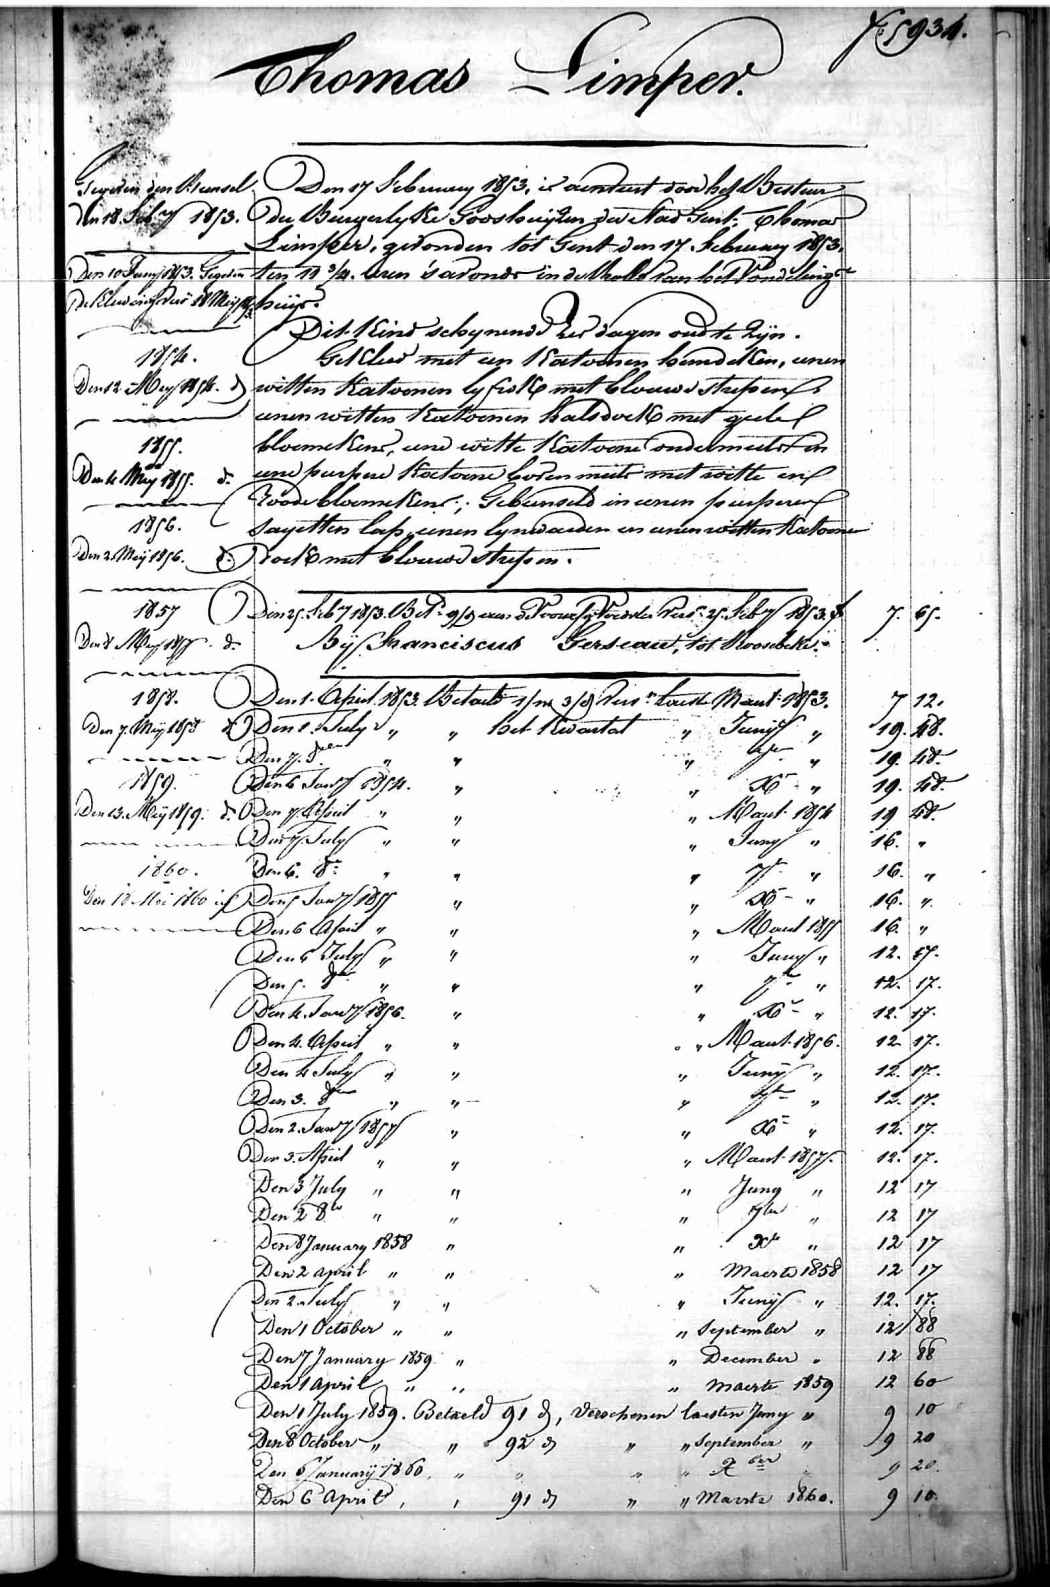 934.
Thomas Limper.
Gegeven den
den 18. 1853.
Den 17 February 1853, is door het Bestuur
der Burgerlyke Godshuyzen der Stad Gent: Thomas
Limper, gevonden tot Gent den 17. February 1853.
ten 11 3/4. uren 's avonds in de van het Vondeling
huys.
Den 10 Juny 1853. Gegeven
Dit Kind schynende dagen oud te Zyn.
Gekleed met een Katoenen hemdeken, eenen
witten Katoenen met blouwe strepen,
eenen witten Katoenen halsdoek met geele
bloemekens, eene witte Katoene ondermuts en
eene purpere Katoene bovenmuts met witte en
roode bloemekens; Gebunseld in eenen purperen
sayetten lap, eenen lynwaeden en eenen witten Katoenen
rock met blouwe strepen.
1854.
Den 12 Mey 1854. d°
1855.
Den 4 Mey 1855. d°
1856.
Den 2. Meÿ 1856. d°
1857
Den 8 Mey 1857 d°
1858.
Den 7. Meÿ 1858 d°
1859.
Den 13. Meÿ 1859. d°
1860.
Den 18 Mei 1860 id
Den 25. Feb 1853. 25. Feb 1853. f 7. 65.
Bÿ Franciscus tot
Den 1. April 1853. Betaelt Maert 1853. 7 12.
Den 1. July " " het Kwartael " Junÿ " 19. 48.
Den 7. 8ber " " " 7ber " 19. 48.
Den 6 Jany 1854. " " Xber " 19. 48.
Den 7. April " " " Maert 1854 19 48.
Den 7 July " " " Juny " 16. "
Den 6. 8bre " " " 7bre " 16. "
Den 5 Jany 1855 " " Xbre " 16. "
Den 6 April " " " Maert 1855 16. "
Den 6 July " " " Juny " 12. 17.
Den 5. 8bre " " " 7bre " 12. 17.
Den 4. Jany 1856. " " Xbre " 12. 17.
Den 4. April " " " Maert 1856. 12. 17.
Den 4 July " " " Junÿ " 12. 17.
Den 3. 8bre " " " 7bre " 12. 17.
Den 2. Jany 1857 " " Xbre " 12. 17.
Den 3. April " " " Maert 1857. 12. 17.
Den 3 July " " " Juny " 12 17
Den 2 8br " " " 7ber " 12 17
Den 8 January 1858 " " Xbr " 12 17
Den 2 april " " " Maerte 1858 12 17
Den 2 July " " " Junÿ " 12. 17.
Den 1 October " " " September " 12 88
Den 7 January 1859 " " December " 12 88
Den 1 April " " " Maerte 1859 12 60
Den 1 July 1859. Betaeld 91 d, verschenen laesten Juny " 9 10
Den 8 October " " 92 d " " September " 9 20
Den 6 Januarÿ 1860. " " " " Xber 9 20.
Den 6 April " " 91 d " " Maerte 1860. 9 10.